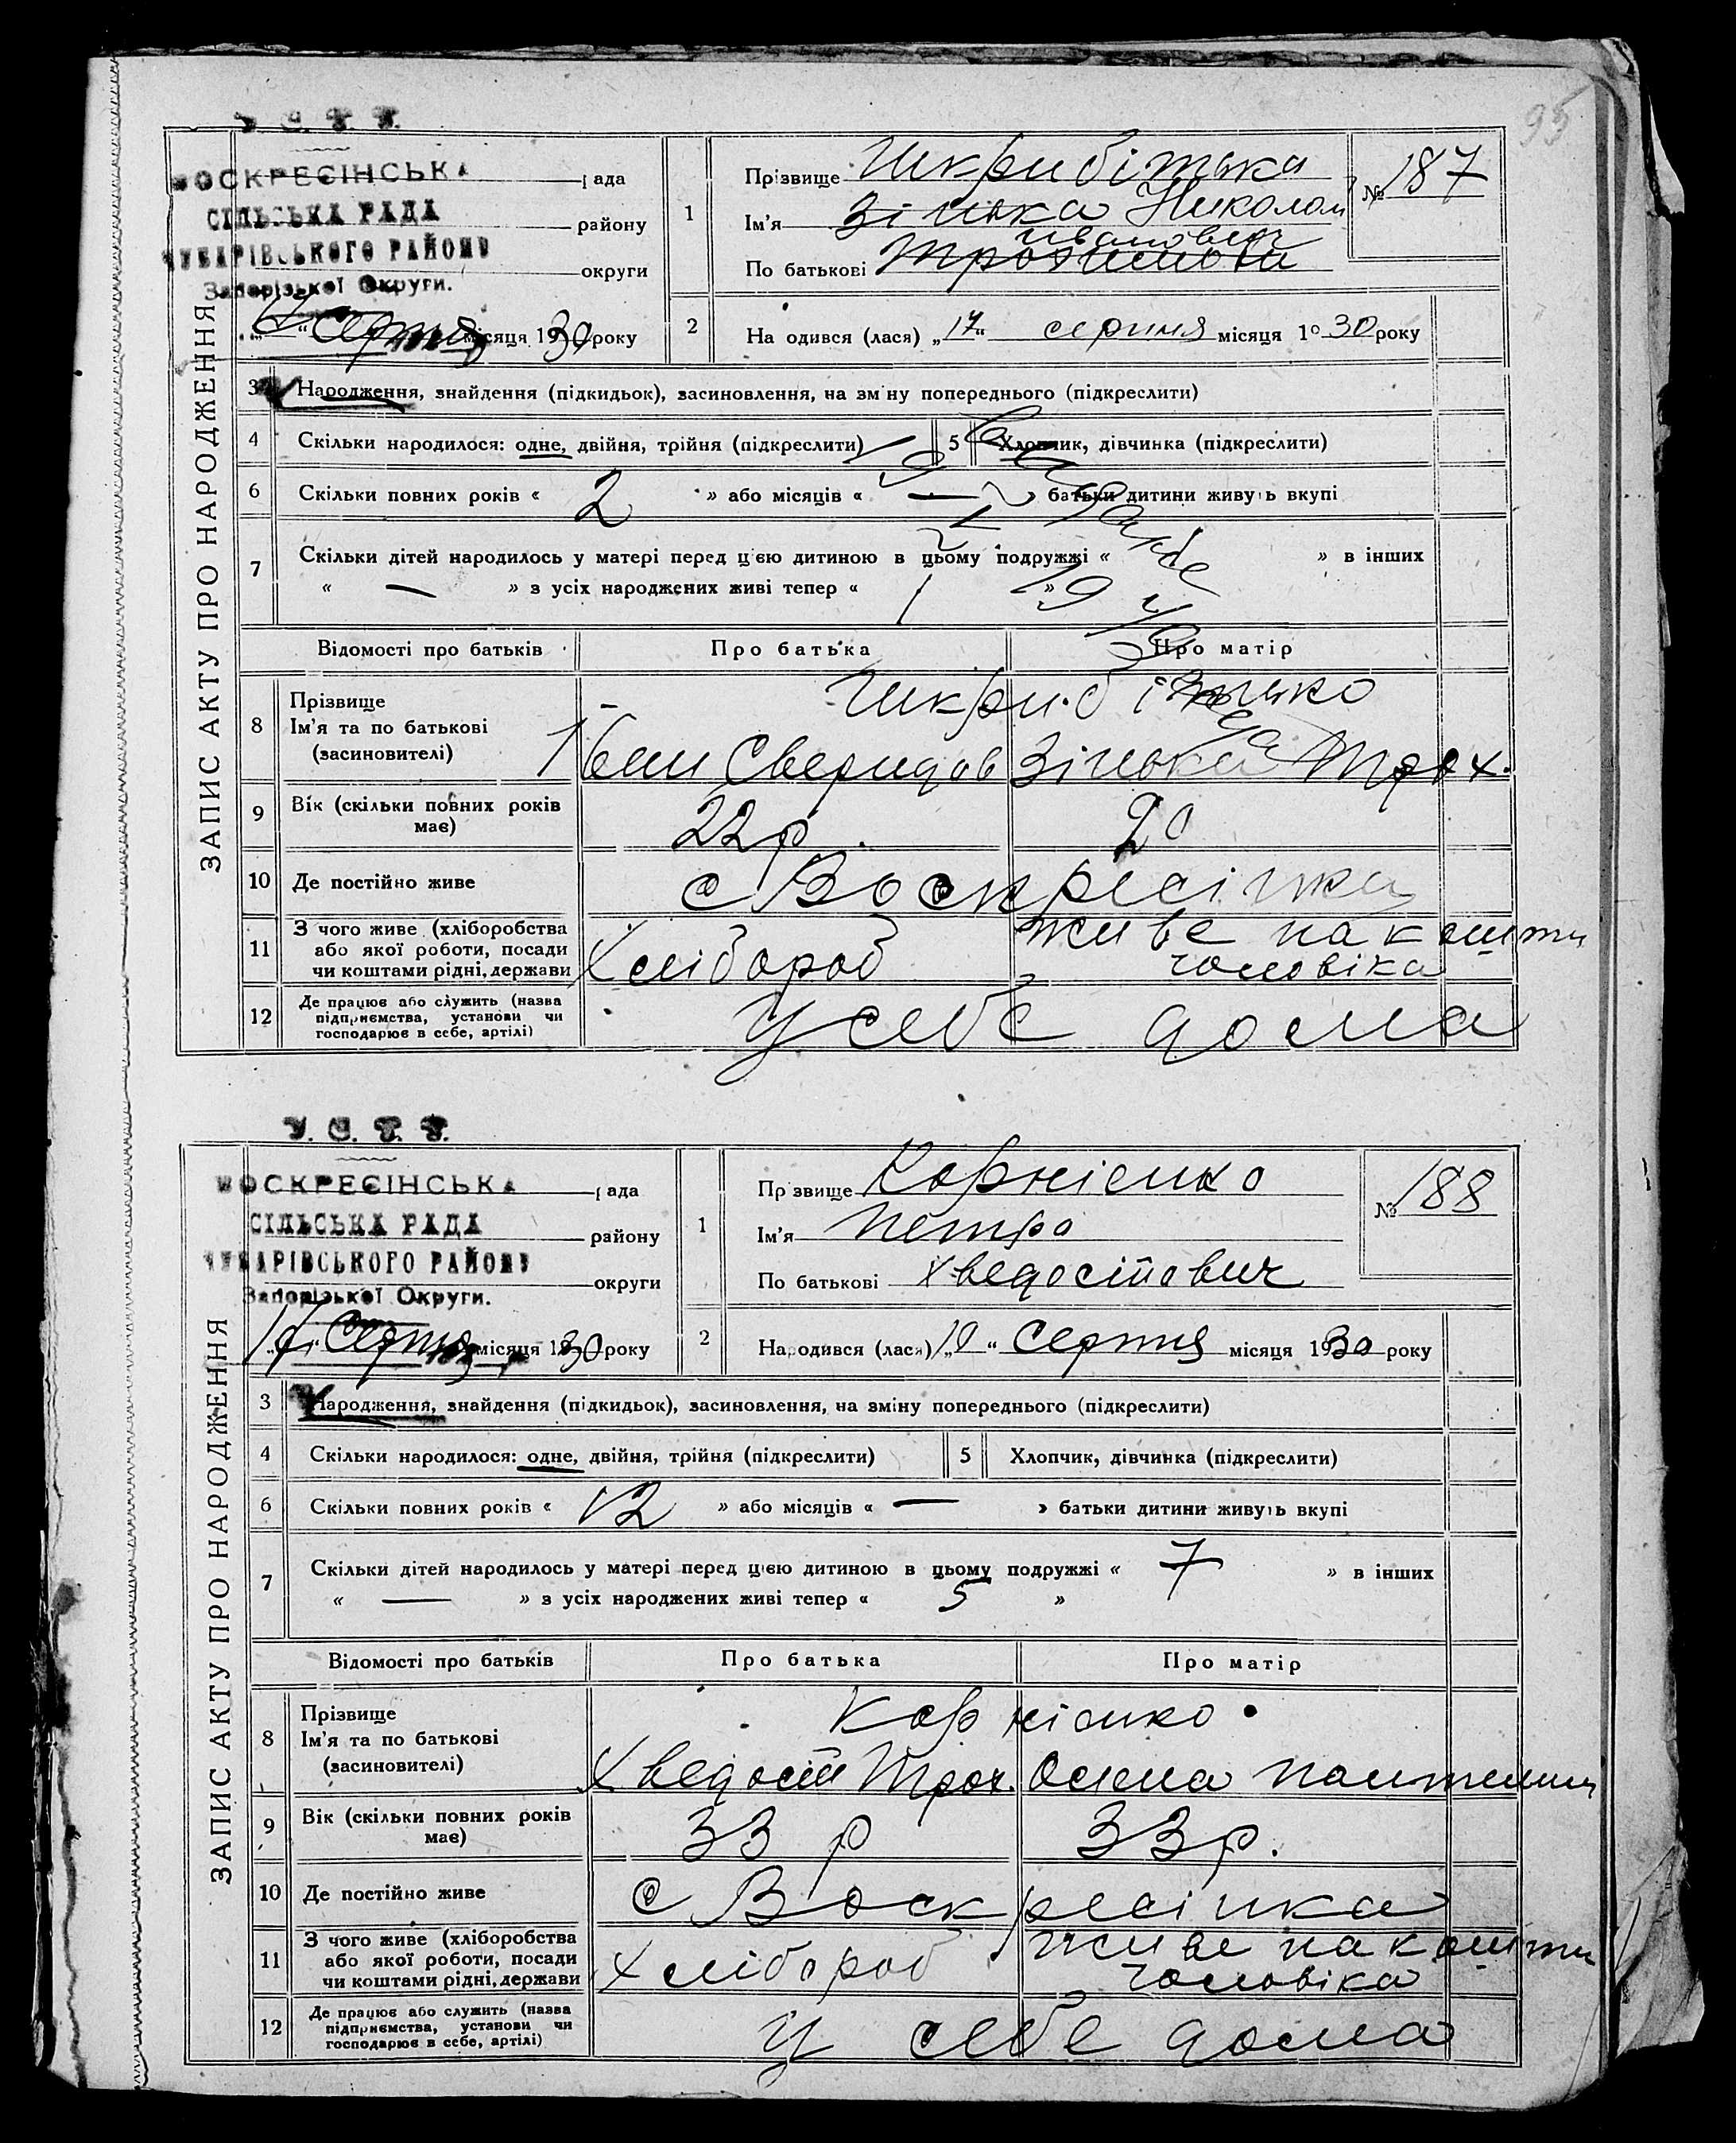 95
У. С. Р. Р.
ВОСКРЕСІНСЬКА рада
СІЛЬСЬКА РАДА району
ЧУБАРІВСЬКОГО РАЙОНУ округи
Запорізької Округи.
Серпня місяця 1930 року
ЗАПИС АКТУ ПРО НАРОДЖЕННЯ
1 Прізвище Шкрибітька
Ім'я Зінька Николай
Иванович
По батькові Трохимова
№ 187
2 На одився (лася) „17“ серпня місяця 19 30 року
3 Народження, знайдення (підкидьок), засиновлення, на зміну попереднього (підкреслити)
4 Скільки народилося: одне, двійня, трійня (підкреслити) 5 Хлопчик, дівчинка (підкреслити)
6 Скільки повних років « 2 » або місяців « — » батьки дитини живуть вкупі
7 Скільки дітей народилось у матері перед цією дитиною в цьому подружжі « » в інших
« — » з усіх народжених живі тепер « 1 »
Відомості про батьків Про батька Про матір
8 Прізвище
Ім'я та по батькові
(засиновителі)
Шкрибітько
Іван Свиридов Зінька Трох.
9 Вік (скільки повних років має) 22 р. 20
10 Де постійно живе с Воскресінка
11 З чого живе (хліборобства
або якої роботи, посади
чи коштами рідні, держави
Хлібороб живе на кошти
чоловіка
12 Де працює або служить (назва
підприємства, установи чи
господарює в себе, артілі)
У себе дома
У. С. Р. Р.
ВОСКРЕСІНСЬКА рада
СІЛЬСЬКА РАДА району
ЧУБАРІВСЬКОГО РАЙОНУ округи
Запорізької Округи.
Серпня місяця 1930 року
ЗАПИС АКТУ ПРО НАРОДЖЕННЯ
1 Прізвище Корнієнко
Ім'я Петро
По батькові Хведосійович
№ 188
2 Народився (лася) „10“ Серпня місяця 1930 року
3 Народження, знайдення (підкидьок), засиновлення, на зміну попереднього (підкреслити)
4 Скільки народилося: одне, двійня, трійня (підкреслити) 5 Хлопчик, дівчинка (підкреслити)
6 Скільки повних років « 12 » або місяців « — » батьки дитини живуть вкупі
7 Скільки дітей народилось у матері перед цією дитиною в цьому подружжі « 7 » в інших
« — » з усіх народжених живі тепер « 5 »
Відомості про батьків Про батька Про матір
8 Прізвище
Ім'я та по батькові
(засиновителі)
Корнієнко
Хведосій Трох.
9 Вік (скільки повних років має) 33 р 33 р.
10 Де постійно живе с Воскресінка
11 З чого живе (хліборобства
або якої роботи, посади
чи коштами рідні, держави
Хлібороб живе на кошти
чоловіка
12 Де працює або служить (назва
підприємства, установи чи
господарює в себе, артілі)
У себе дома